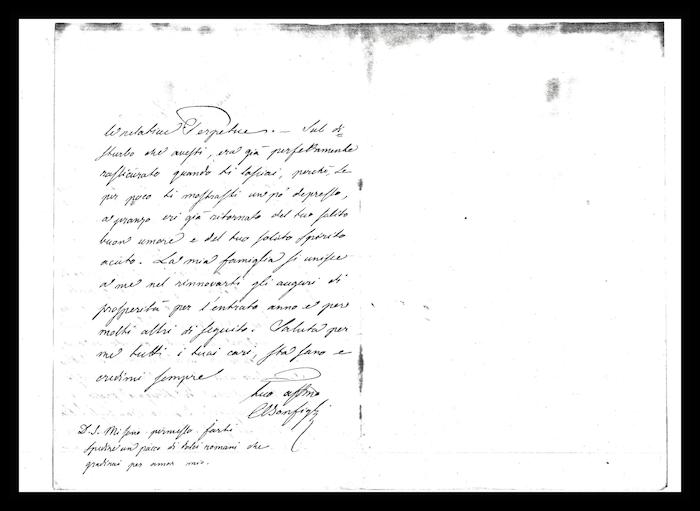 le relative Perpetue. — Sul di=
sturbo che avesti, ero già perfettamente
rassicurato quando ti lasciai, perchè, se
per poco ti mostrasti un pò depresso,
a pranzo eri già ritornato del tuo solito
buon umore e del tuo solito spirito
acuto. La mia famiglia si unisce
a me nel rinnovarti gli auguri di
prosperità per l'entrato anno e per
molti altri di seguito. Saluta per
me tutti i tuoi cari, sta sano e
credimi sempre
tuo affmo
CBonfigli
P.S. Mi sono permesso farti
spedire un pacco di dolci romani che
gradirai per amor mio.